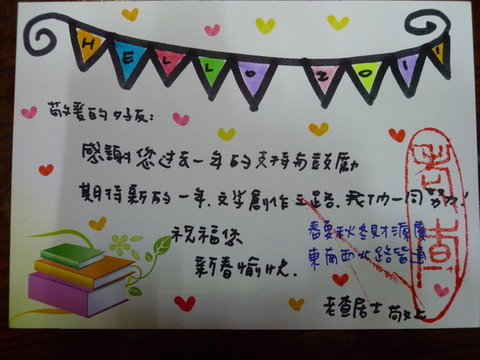 HELLO 2011
敬愛的好友:
感謝您過去一年的支持與鼓勵
期待新的一年,文學創作之路,我们一同努力!
祝福您
新春愉快.
春夏秋冬財源廣
東南西北路皆通
老查居士敬上
老查